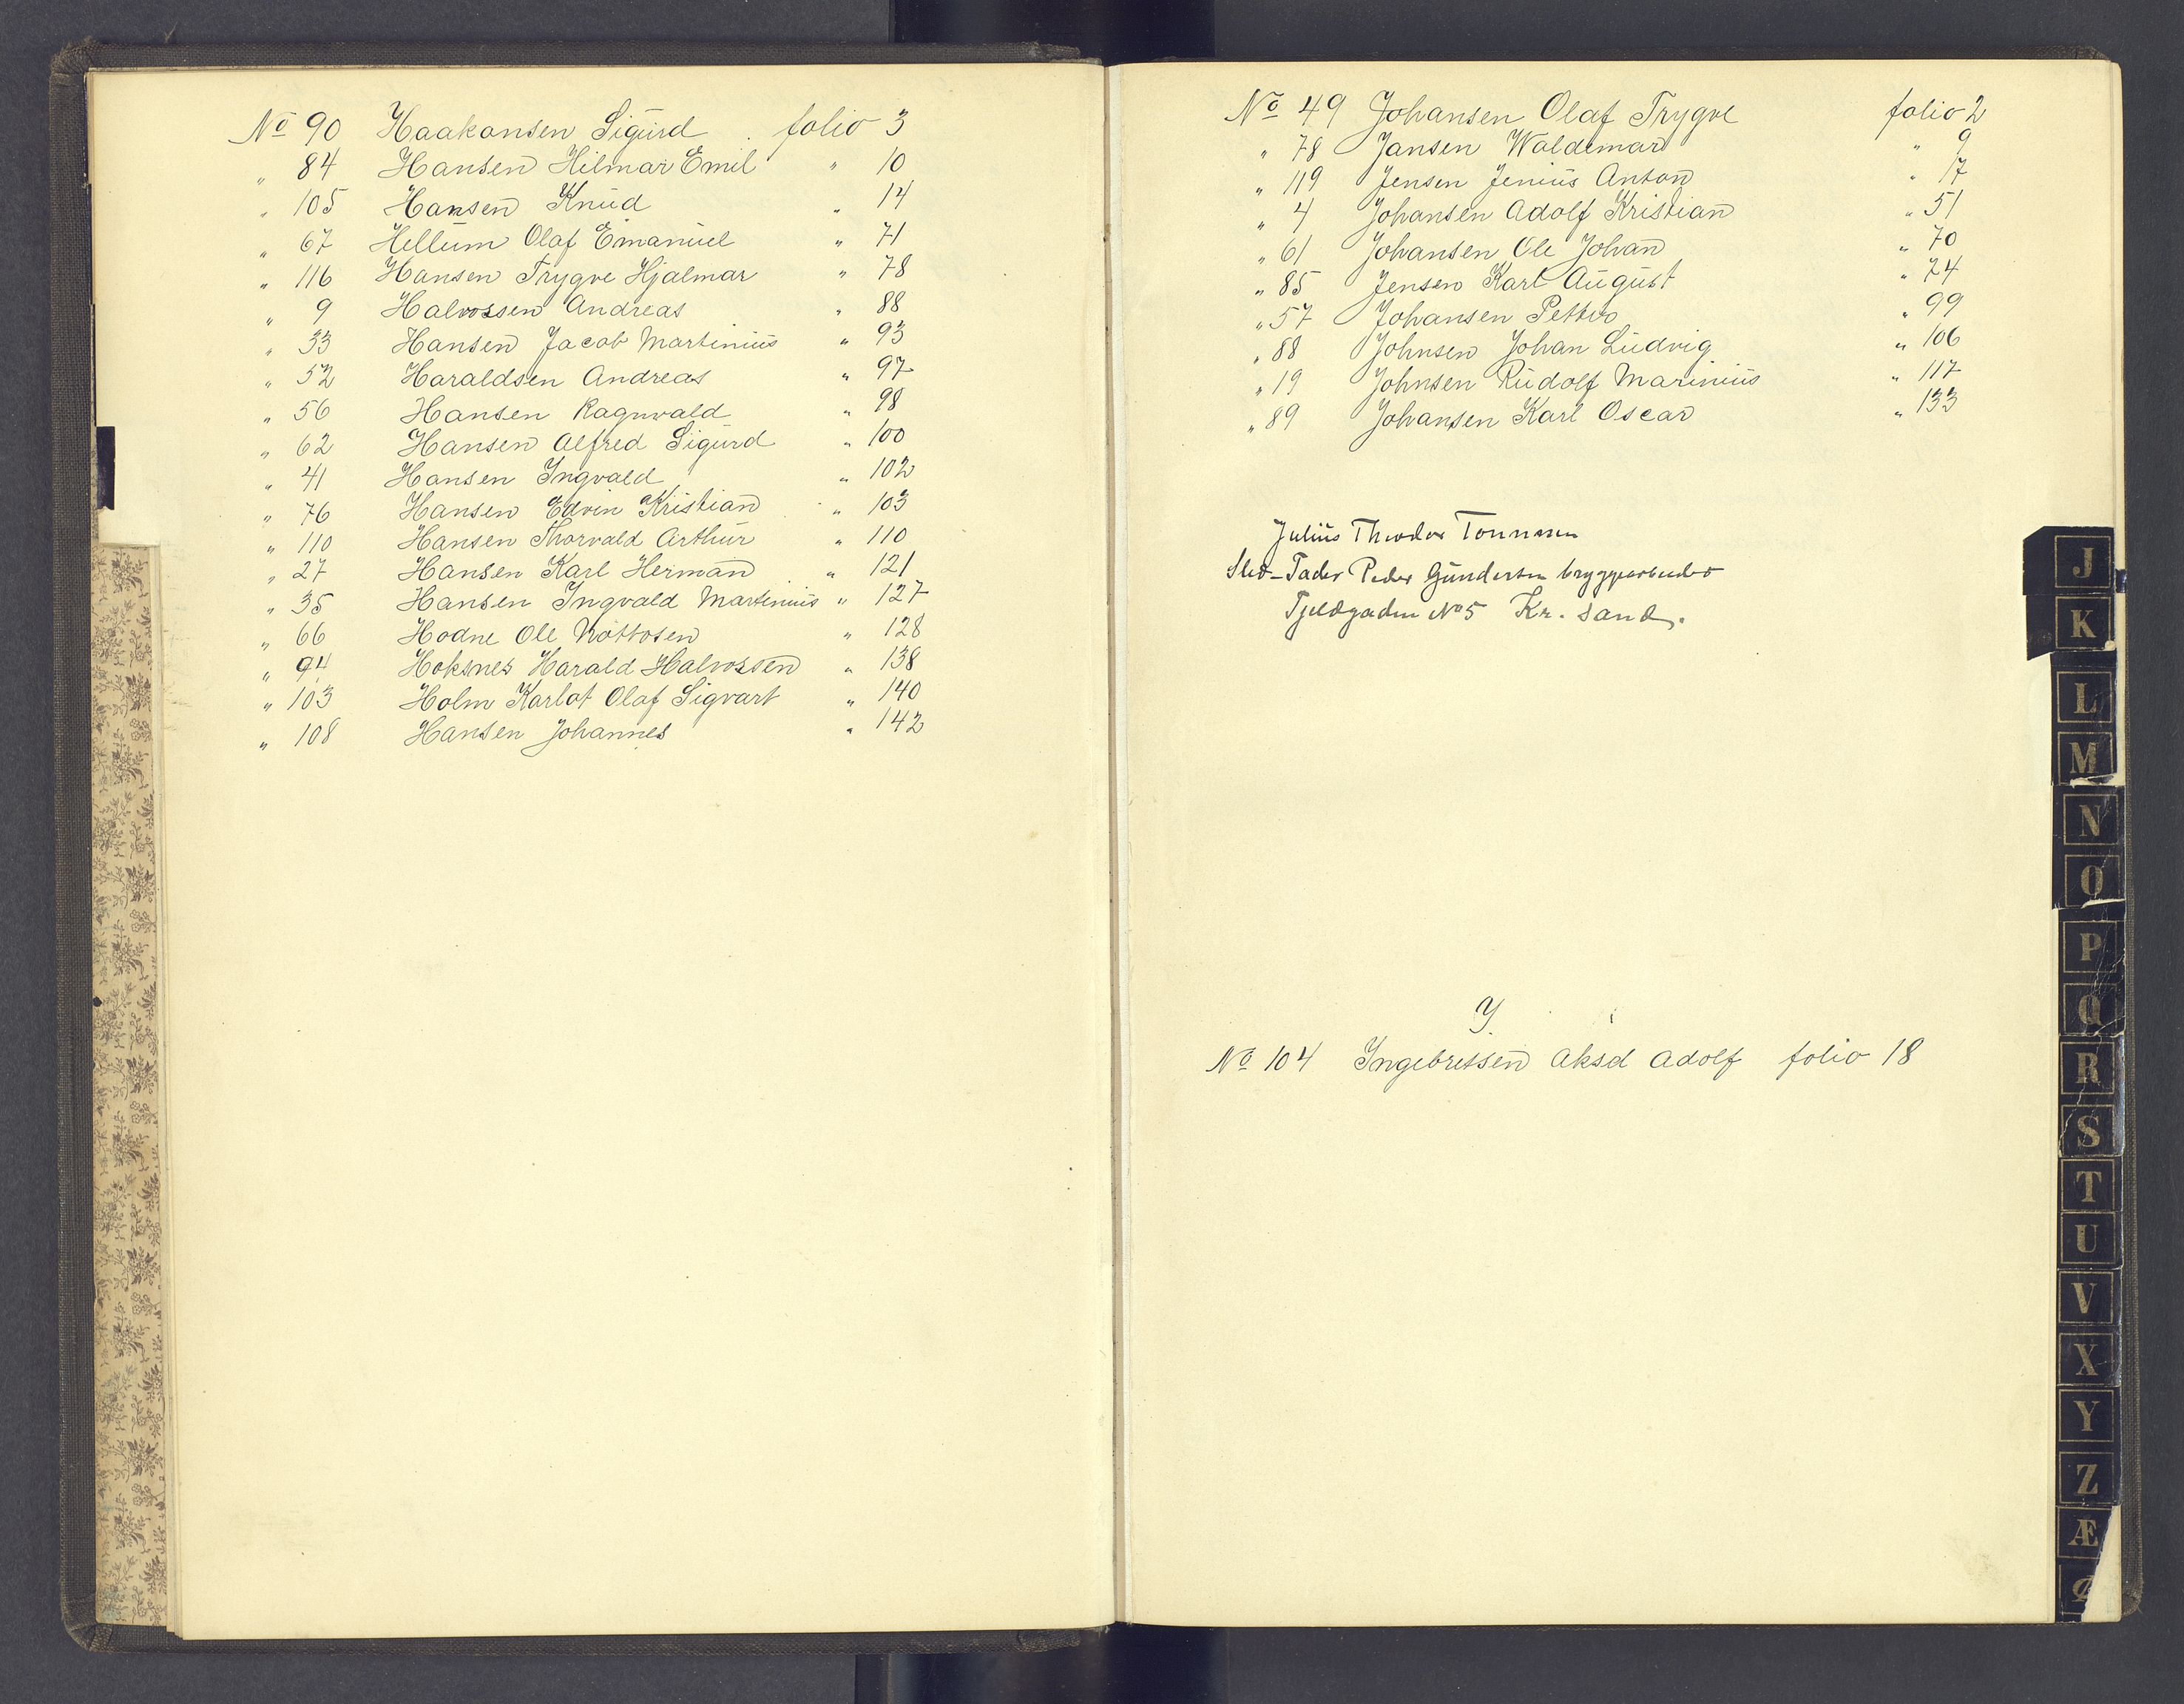 No 90 Haakonsen Sigurd folio 3
" 84 Hansen Hilmar Emil " 10
" 105 Hansen Knud " 14
" 67 Hellum Olaf Emanuel " 71
" 116 Hansen Trygve Hjalmar " 78
" 9 Halvorsen Andreas " 88
" 33 Hansen Jacob Martinius " 93
" 52 Haraldsen Andreas " 97
" 56 Hansen Ragnvald " 98
" 62 Hansen Alfred Sigurd " 100
" 41 Hansen Ingvald " 102
" 76 Hansen Edvin Kristian " 103
" 110 Hansen Thorvald Arthur " 110
" 27 Hansen Karl Herman " 121
" 35 Hansen Ingvald Martinius " 127
" 66 Hodne Ole " 128
" 94 Hoksnes Harald Halvorsen " 138
" 103 Holm Karlot Olaf Sigvart " 140
" 108 Hansen Johannes " 142
No 49 Johansen Olaf Trygve folio 2
" 78 Jansen Waldemar " 9
" 119 Jensen Jenius Anton " 17
" 4 Johansen Adolf Kristian " 51
" 61 Johansen Ole Johan " 70
" 85 Jensen Karl August " 74
" 57 Johansen Petter " 99
" 88 Johnsen Johan Ludvig " 106
" 19 Johnsen Rudolf Marinius " 117
" 89 Johansen Karl Oscar " 133
Julius Theodor Tønnesen
Sted-Fader Peder Gundersen bryggearbeider
No 5 Kr. sand.
Y
No 104 Ingebretsen Aksel Adolf folio 18
J
K
L
M
N
O
P
Q
R
S
T
U
V
X
Y
Z
Æ
Ø